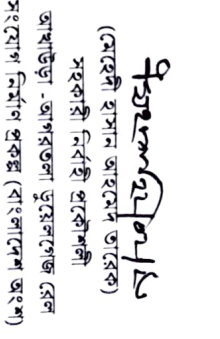 (মেহেদী হাসান আহমেদ তারেক)
সহকারী নির্বাহী প্রকৌশলী
আখাউড়া - আগরতলা ডুয়েলগেজ রেল
সংযোগ নির্মাণ প্রকল্প (বাংলাদেশ অংশ)